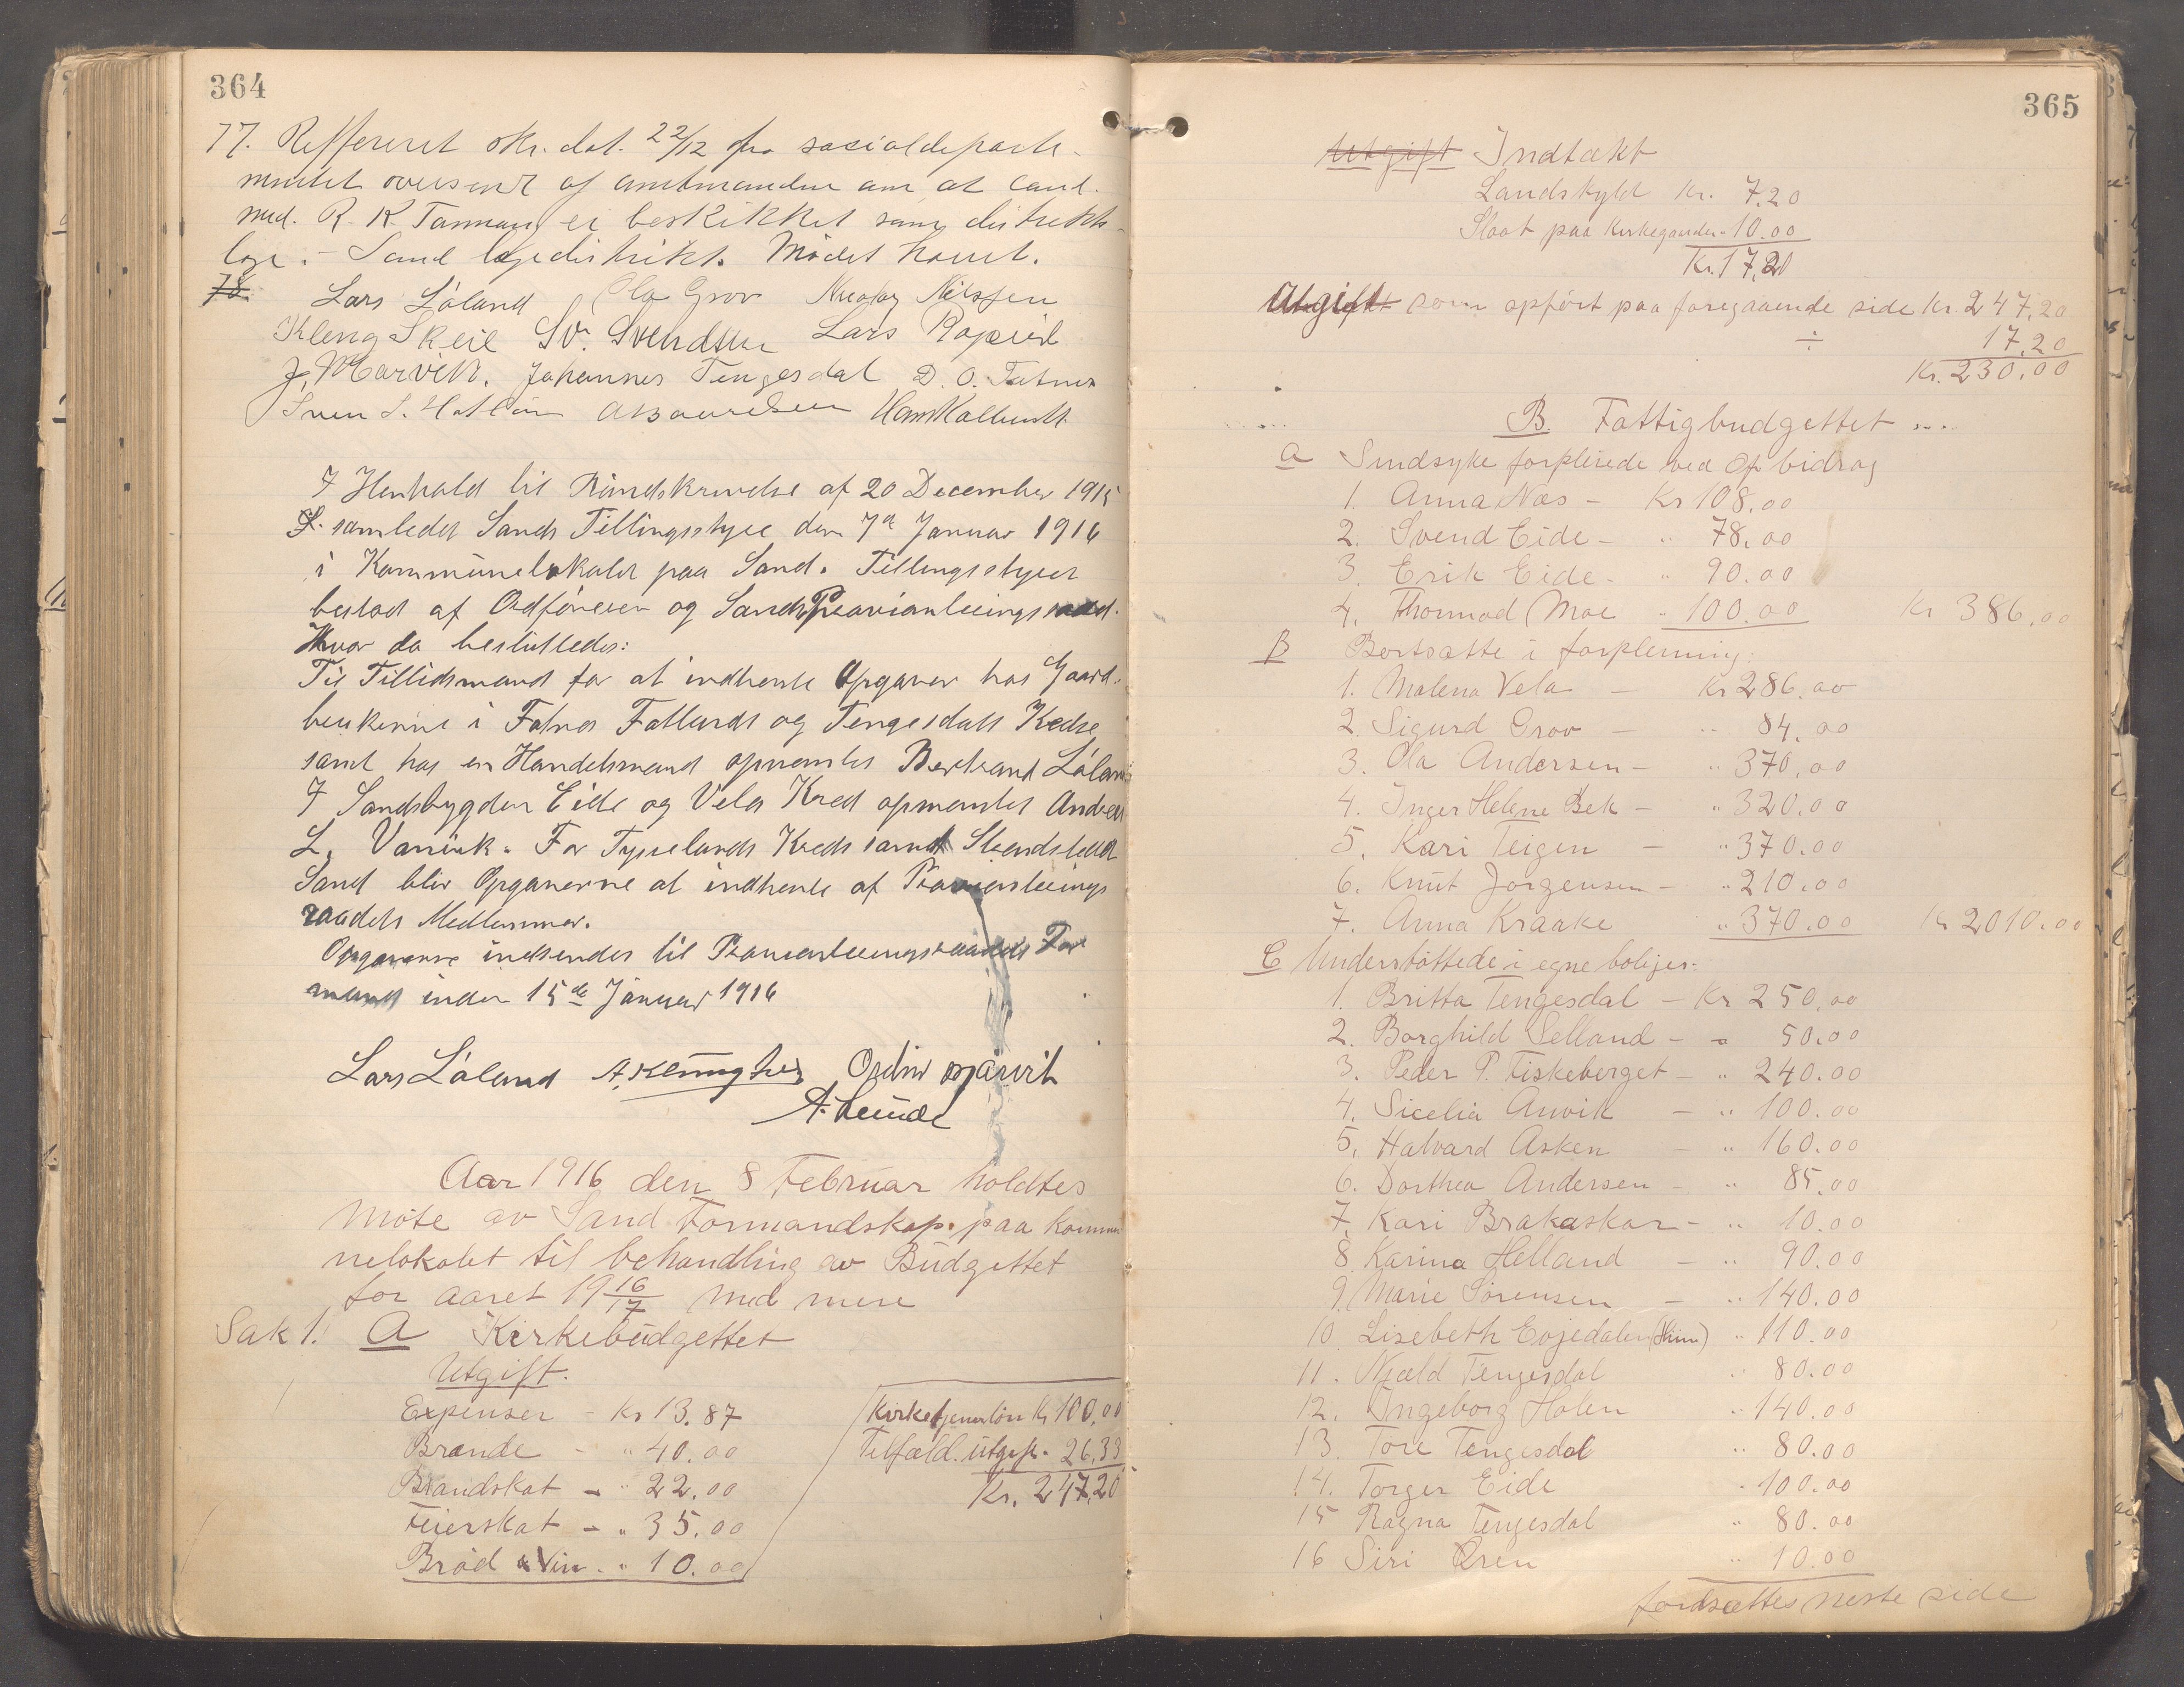 364
77. Reffereret skr. dat. 22/12 fra socialdeparte-
mentet oversendt af amtmanden om at cand.
med. R. K. Tanman er beskikket som distrikts-
læge i Sand lægedistrikt. Mødet hævet.
78.
Lars Løland Ola Grov Nicolay Nilssen
Kleng Skeie Sv. Svendsen Lars
J. Marvik. Johannes Tengesdal D. O. Fatnes
Sven S.
I Henhold til Rundskrivelse af 20 December 1915
samledes Sands Tillingsstyre den 7de Januar 1916
i Kommunelokalet paa Sand. Tillingsstyret
bestod af Ordføreren og Sands Provianteringsraad.
Hvor da besluttedes:
Til Tillidsmand for at indhente Opgaver hos Gaard-
brukerne i Fatnes Fatlands og Tengesdals Kredse
samt hos en Handelsmand opnevntes Bertrand Løland
I Sandsbygden Eide og Vela Kred opnevntes Andreas
L. Vanvik. For Tysselands Kreds samt Strandstedet
Sand blir Opgaverne at indhente af Provianterings
raadets Medlemmer.
Opgaverne indsendes til Provianteringsraadets For
mand inden 15de Januar 1916
Lars Løland
Aar 1916 den 8 Februar holdtes
møte av Sand Formandskap paa kommu
nelokalet til behandling av Budgettet
for aaret 19 16/17 med mere
Sak 1. A Kirkebudgettet
Utgift.
Expenser – Kr 13.87
Brænde – " 40.00
Brandskat – " 22.00
Feierskat – " 35.00
Brød & Vin – " 10.00
Kirketjenerløn Kr 100,00
Tilfæld. utgift. 26,33
Kr. 247,20
365
Utgift Indtækt
Landskyld Kr. 7.20
Slaat paa Kirkegaarden " 10.00
Kr. 17,20
Utgift som opført paa foregaaende side Kr. 247,20
÷ 17,20
Kr. 230,00
B. Fattigbudgettet
a Sindsyke forpleiede ved Of bidrag
1. Anna Næs – Kr 108.00
2. Svend Eide – " 78.00
3. Erik Eide – " 90.00
4. Thormod Moe " 100.00 Kr 386,00
B Bortsatte i forpleining:
1. Malena Vela – Kr 286.00
2. Sigurd Grov – " 84.00
3. Ola Andersen – " 370.00
4. Inger Helene Bek – " 320.00
5. Kari Teigen – " 370.00
6. Knut Jørgensen – " 210.00
7. Anna Kraake " 370.00 Kr 2010.00
C Understøttede i egne boliger:
1. Britta Tengesdal – Kr 250.00
2. Borghild Selland – " 50.00
3. Peder P. Fiskeberget – " 240.00
4. Sicelia Anvik – " 100.00
5. Halvard Asken – " 160.00
6. Dorthea Andersen – " 85.00
7. Kari Brakaskar – " 10.00
8. Karina Helland – " 90.00
9. Marie Sørensen – " 140.00
10. Lisebeth Eojedalen " 110.00
11. Tengesdal " 80.00
12. Ingeborg Holen " 140.00
13. Tore Tengesdal " 80.00
14. Torger Eide " 100.00
15 Ragna Tengesdal " 80.00
16 Siri Øren " 10.00
fordsættes neste side